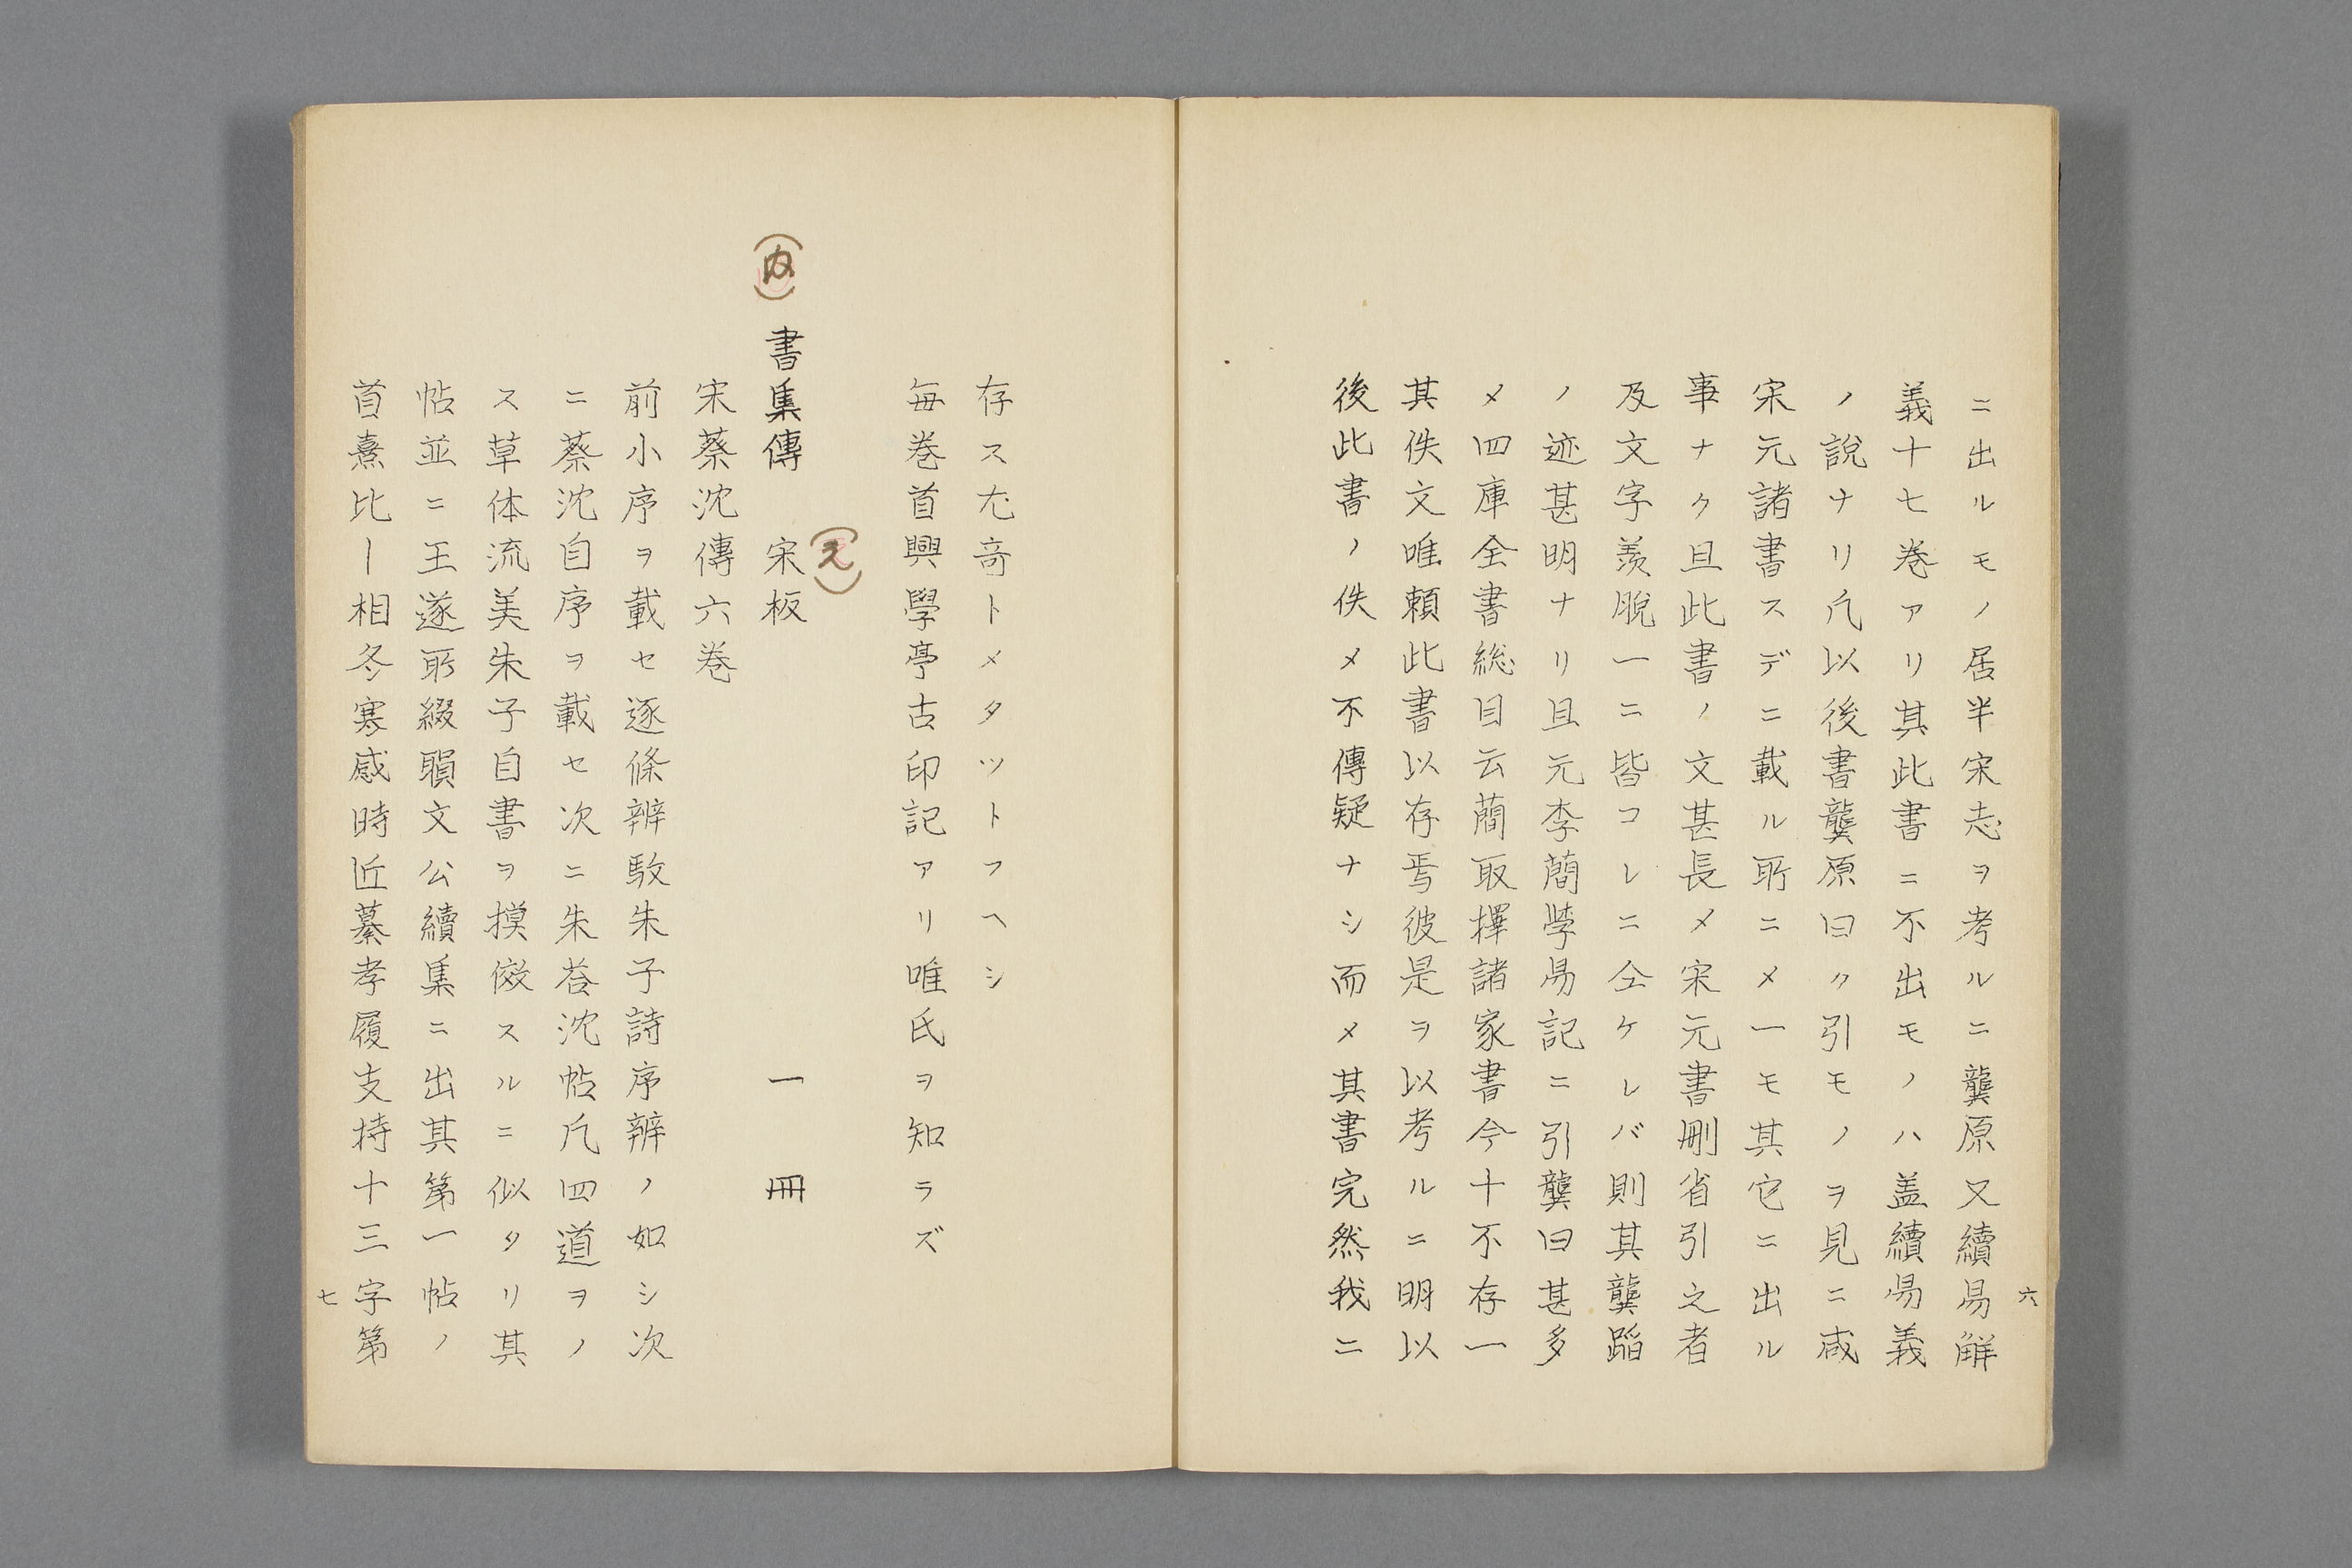 ニ出ルモノ居半宋志ヲ考ルニ龔原又續易解
義十七巻アリ其此書ニ不出モノハ盖續易義
ノ說ナリ凢以後書龔原曰ク引モノヲ見ニ咸
宋元諸書スデニ載ル所ニメ一モ其它ニ出ル
事ナク且此書ノ文甚長メ宋元書刪省引之者
及文字羨脫一ニ皆コレニ仝ケレバ則其龔蹈
ノ迹甚明ナリ且元李蕳學易記ニ引龔曰甚多
メ四庫全書総目云蕳取擇諸家書今十不存一
其佚文唯頼此書以存焉彼是ヲ以考ルニ明以
後此書ノ佚メ不傳疑ナシ而メ其書完然我ニ
六
存ス尤奇トメタツトフヘシ
毎巻首興學亭古印記アリ唯氏ヲ知ラズ
(内) 書集傳 宋板 一冊
(元)
宋蔡沈傳六巻
前小序ヲ載セ逐條辨駁朱子詩序辨ノ如シ次
ニ蔡沈自序ヲ載セ次ニ朱荅沈帖凢四道ヲノ
ス草体流美朱子自書ヲ摸倣スルニ似タリ其
帖並ニ王遂所綴韻文公續集ニ出其第一帖ノ
首熹比ー相冬寒感時匠綦孝履支持十三字第
七